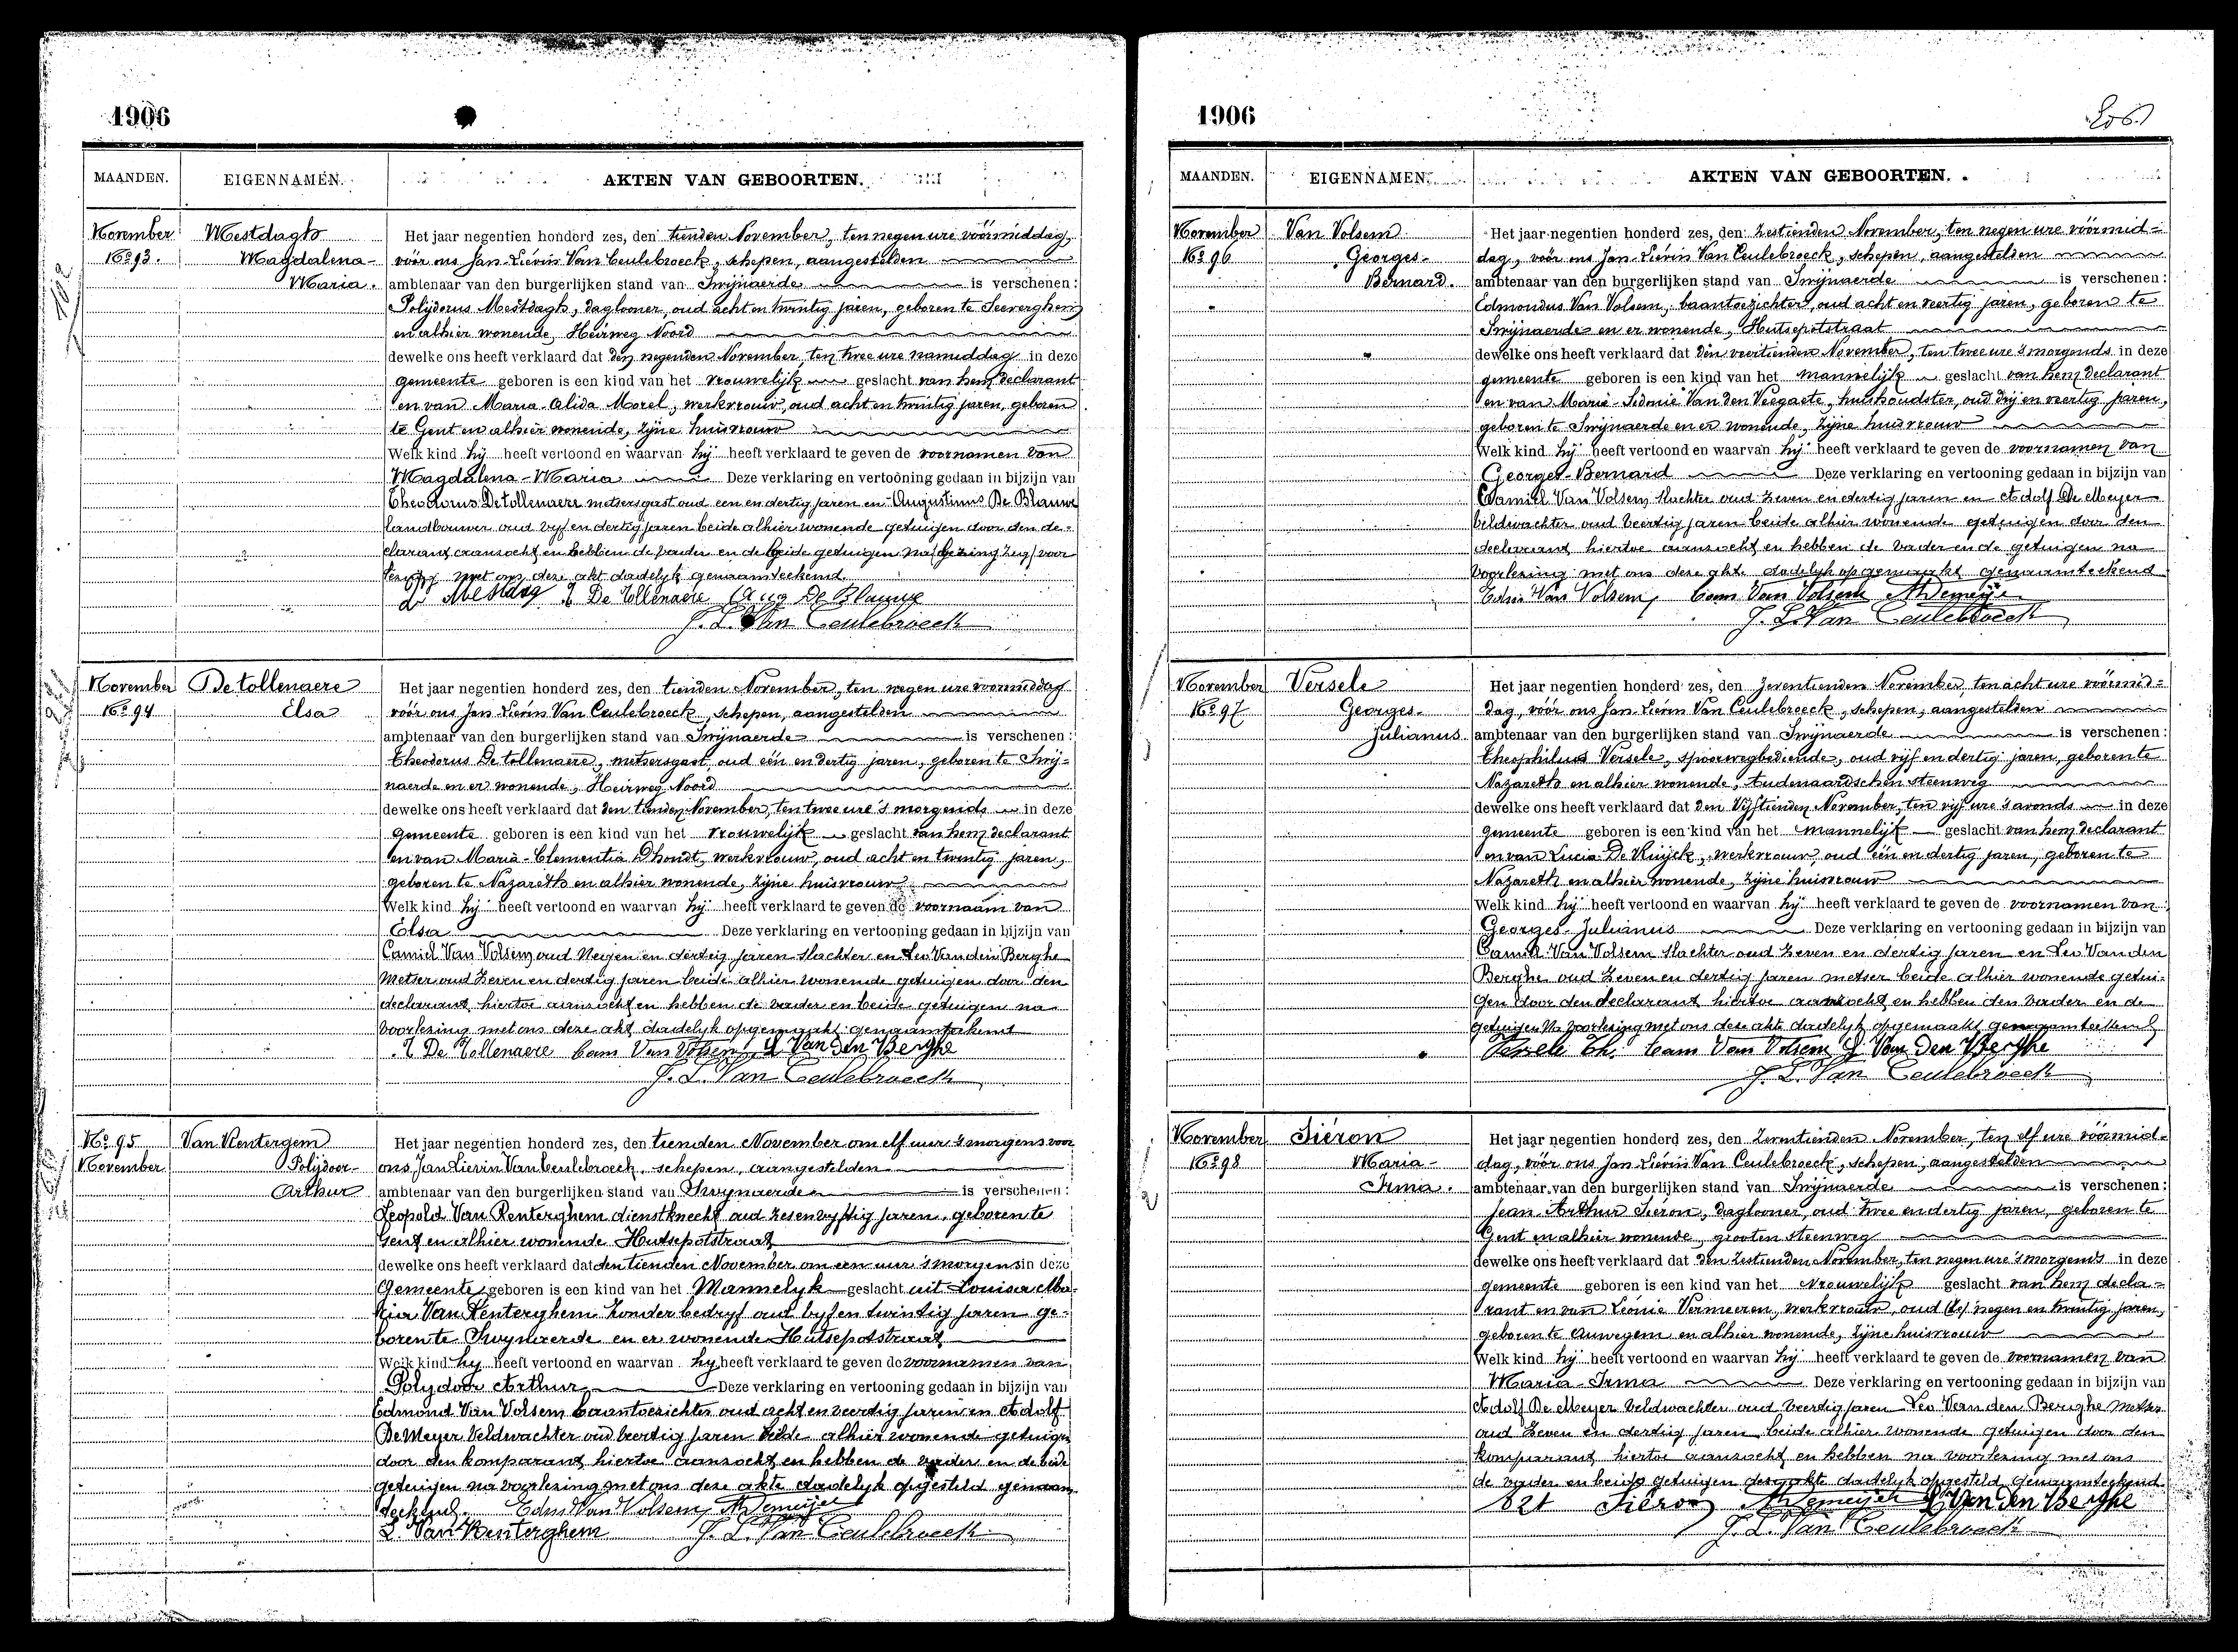 1906
MAANDEN.
EIGENNAMEN.
AKTEN VAN GEBOORTEN.
November
No 93.
Mestdagh
Magdalena-
Maria.
Het jaar negentien honderd zes, den tienden November, ten negen ure vóórmiddag,
vóór ons Jan-Lievin Van Ceulebroeck, schepen, aangestelden
ambtenaar van den burgerlijken stand van Swijnaerde is verschenen:
Polijdorus Mestdagh, daglooner, oud acht en twintig jaren, geboren te Seeverghem
en alhier wonende, Heirweg Noord
dewelke ons heeft verklaard dat den negenden November, ten twee ure namiddag in deze
gemeente geboren is een kind van het vrouwelijk geslacht van hem declarant
en van Maria-Alida Morel, werkvrouw, oud acht en twintig jaren, geboren
te Gent en alhier wonende, zijne huisvrouw
Welk kind hij heeft vertoond en waarvan hij heeft verklaard te geven de voornamen van
Magdalena-Maria Deze verklaring en vertooning gedaan in bijzijn van
Theodorus Detollenaere metsersgast oud een en dertig jaren en Augustinus De Blauwe
landbouwer oud vyf en dertig jaren beide alhier wonende getuigen door den de-
clarant aanzocht en hebben de vader en de beide getuigen na voor
lezing met ons deze akt dadelyk genaamteekend.
Mestdag T De Tollenaere Aug De Blauwe
J. L. Van Ceulebroeck
November
No 94
Detollenaere
Elsa
Het jaar negentien honderd zes, den tienden November, ten negen ure voormiddag
vóór ons Jan Lievin Van Ceulebroeck, schepen, aangestelden
ambtenaar van den burgerlijken stand van Swijnaerde is verschenen:
Theodorus Detollenaere, metsersgast, oud één en dertig jaren, geboren te Swij-
naerde en er wonende, Heirweg Noord
dewelke ons heeft verklaard dat den tienden November, ten twee ure 's morgends in deze
gemeente geboren is een kind van het vrouwelijk geslacht van hem declarant
en van Maria-Clementia Dhondt, werkvrouw, oud acht en twintig jaren,
geboren te Nazareth en alhier wonende, zijne huisvrouw
Welk kind hij heeft vertoond en waarvan hij heeft verklaard te geven de voornaam van
Elsa Deze verklaring en vertooning gedaan in bijzijn van
Camiel Van Volsem oud Negen en dertig jaren slachter en Leo Van den Berghe
Metser oud Zeven en dertig jaren beide alhier wonende getuigen door den
declarant hiertoe aanzocht en hebben de vader en beide getuigen na
voorlezing met ons deze akt dadelyk opgemaakt genaamteekent
T De Tollenaere Cam Van Volsem L Van Den Berghe
J. L. Van Ceulebroeck
No 95
November
Van Renterghem
Polijdoor-
Arthur
Het jaar negentien honderd zes, den tienden November om elf uur smorgens voor
ons, Jan Lievin Van Ceulebroeck, schepen, aangestelden
ambtenaar van den burgerlijken stand van Swynaerde is verschenen:
Leopold Van Renterghem dienstknecht oud zes en vyftig jaren, geboren te
Gent en alhier wonende Hutsepotstraat
dewelke ons heeft verklaard dat den tienden November om een uur 's morgens in deze
Gemeente geboren is een kind van het Mannelyk geslacht uit Louisa Ma-
ria Van Renterghem zonder bedryf oud vyf en twintig jaren ge-
boren te Swynaerde en er wonende Hutsepotstraat
Welk kind hy heeft vertoond en waarvan hy heeft verklaard te geven de voornamen van
Polydoor Arthur Deze verklaring en vertooning gedaan in bijzijn van
Edmond Van Volsem baantoezichter oud acht en veertig jaren en Adolf
De Meyer Veldwachter oud veertig jaren beide alhier wonende getuigen
door den komparant hiertoe aanzocht en hebben de vader en de beide
getuigen na voorlezing met ons deze akte dadelyk opgesteld genaam
teekend. Edm Van Volsem A Demeijer
L. Van Renterghem J. L. Van Ceulebroeck
1906
206
MAANDEN.
EIGENNAMEN.
AKTEN VAN GEBOORTEN.
November
No 96
Van Volsem
Georges-
Bernard.
Het jaar negentien honderd zes, den zestienden November, ten negen ure vóórmid-
dag, vóór ons Jan-Lievin Van Ceulebroeck, schepen, aangestelden
ambtenaar van den burgerlijken stand van Swijnaerde is verschenen:
Edmondus Van Volsem, baantoezichter, oud acht en veertig jaren, geboren te
Swijnaerde en er wonende, Hutsepotstraat
dewelke ons heeft verklaard dat den veertienden November, ten twee ure 's morgends in deze
gemeente geboren is een kind van het mannelijk geslacht van hem declarant
en van Marie-Sidonie Van Den Veegaete, huishoudster, oud drij en veertig jaren,
geboren te Swijnaerde en er wonende, zijne huisvrouw
Welk kind hij heeft vertoond en waarvan hij heeft verklaard te geven de voornamen van
Georges-Bernard Deze verklaring en vertooning gedaan in bijzijn van
Camiel Van Volsem slachter oud zeven en dertig jaren en Adolf De Meyer
veldwachter oud veertig jaren beide alhier wonende getuigen door den
declarant hiertoe aanzocht en hebben de vader en de getuigen na
voorlezing met ons deze akte dadelyk opgemaakt genaamteekend
Edm Van Volsem, Cam Van Volsem A Demeijer
J. L. Van Ceulebroeck
November
No 97
Versele
Georges-
Julianus
Het jaar negentien honderd zes, den zeventienden November, ten acht ure vóórmid-
dag, vóór ons Jan-Lievin Van Ceulebroeck, schepen, aangestelden
ambtenaar van den burgerlijken stand van Swijnaerde is verschenen:
Theophilus Versele, spoorwegbediende, oud vijf en dertig jaren, geboren te
Nazareth en alhier wonende, Audenaardschen steenweg
dewelke ons heeft verklaard dat den Vijftienden November, ten vijf ure 's avonds in deze
gemeente geboren is een kind van het mannelijk geslacht van hem declarant
en van Lucia De Ruijck, werkvrouw, oud één en dertig jaren, geboren te
Nazareth en alhier wonende, zijne huisvrouw
Welk kind hij heeft vertoond en waarvan hij heeft verklaard te geven de voornamen van
Georges-Julianus Deze verklaring en vertooning gedaan in bijzijn van
Camiel Van Volsem slachter oud zeven en dertig jaren en Leo Van den
Berghe oud Zeven en dertig jaren metser beide alhier wonende getui-
gen door den declarant hiertoe aanzocht en hebben den vader en de
getuigen na voorlezing met ons deze akte dadelyk opgemaakt genaamteekend
Versele Th. Cam Van Volsem L Van Den Berghe
J. L. Van Ceulebroeck
November
No 98
Siéron
Maria-
Irma.
Het jaar negentien honderd zes, den Zeventienden November, ten elf ure vóórmid-
dag, vóór ons Jan-Lievin Van Ceulebroeck, schepen, aangestelden
ambtenaar van den burgerlijken stand van Swijnaerde is verschenen:
Jean-Arthur Siéron, daglooner, oud twee en dertig jaren, geboren te
Gent en alhier wonende, grooten steenweg
dewelke ons heeft verklaard dat den zestienden November, ten negen ure 's morgends in deze
gemeente geboren is een kind van het vrouwelijk geslacht van hem decla-
rant en van Léonie Vermeeren, werkvrouw, oud negen en twintig jaren,
geboren te Auwegem en alhier wonende, zijne huisvrouw
Welk kind hij heeft vertoond en waarvan hij heeft verklaard te geven de voornamen van
Maria-Irma Deze verklaring en vertooning gedaan in bijzijn van
Adolf De Meyer veldwachter oud veertig jaren Leo Van den Berghe Metser
oud Zeven en dertig jaren beide alhier wonende getuigen door den
komparant hiertoe aanzocht en hebben na voorlezing met ons
de vader en beide getuigen deze akte dadelyk opgesteld genaamteekend
Siéron A Demeijer L Van Den Berghe
J. L. Van Ceulebroeck